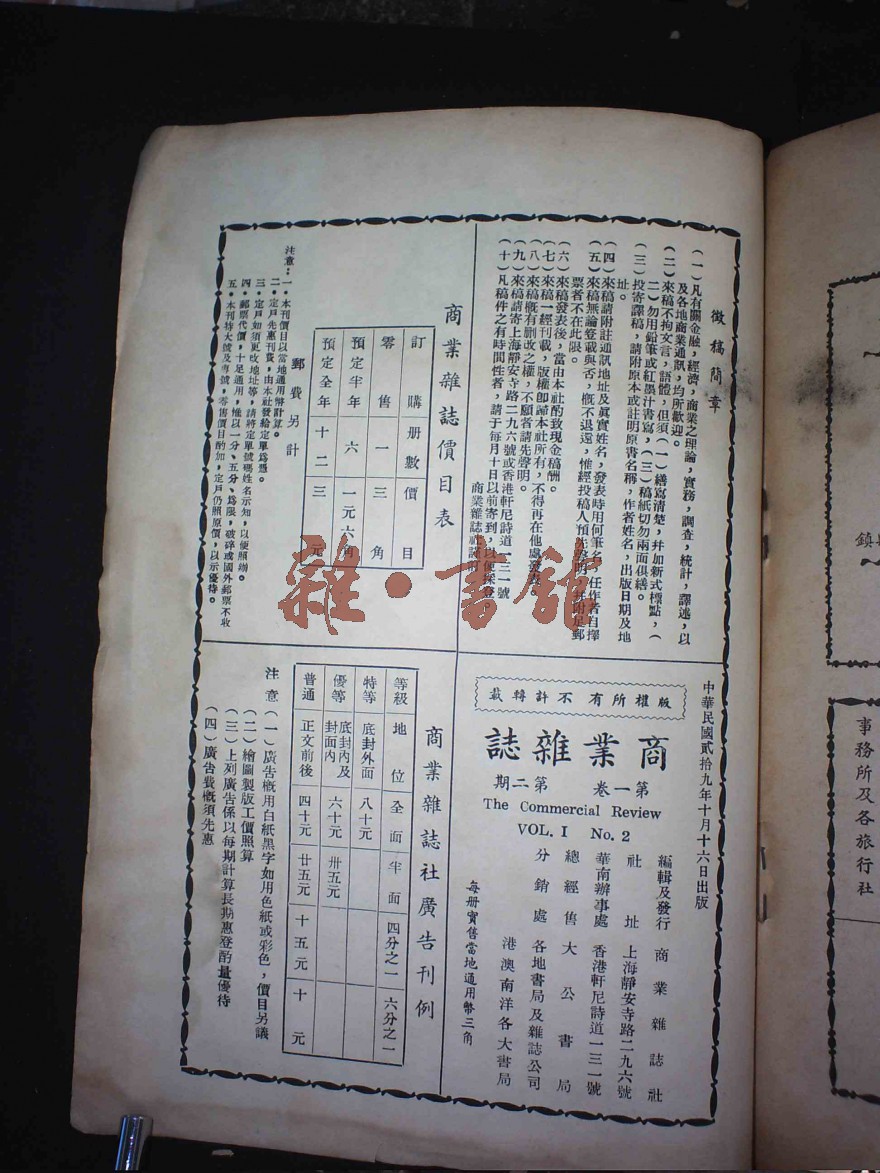 徵稿簡章
(一)凡有關金融,經濟,商業之理論,實務,調查,統計,譯述,以
及各地商業通訊,均所歡迎。
(二)來稿不拘文言,語體,但須(一)繕寫清楚,幷加新式標點,(
二)勿用鉛筆或紅墨汁書寫,(三)稿紙切勿兩面俱繕。
(三)投寄譯稿,請附原本或註明原書名稱,作者姓名,出版日期及地
址。
(四)來稿請附註通訊地址及眞實姓名,發表時用何筆名,任作者自擇
(五)來稿無論登載與否,槪不退還,惟經投稿人預先聲明,幷附足郵
票者不在此限。
(六)來稿發表後,當由本社酌致現金稿酬。
(七)來稿一經刊載,版權卽歸本社所有,不得再在他處發表。
(八)來稿槪有删改之權,不願者請先聲明。
(九)來稿請寄上海靜安寺路二九六號或香港軒尼詩道一三一號
(十)凡稿件之有時間性者,請于每月十日以前寄到,以便採登
商業雜誌社謹訂
商業雜誌價目表
訂購册數價目
零售一三角
預定半年六一元六角
預定全年十二三元
郵費另計
注意:一●本刊價目以當地通用幣計算。
二●定戶先惠刊費,由本社發給定單爲憑。
三●定戶如須更改地址等,請將定單號碼姓名示知,以便照辦。
四●郵票代價,十足通用,惟以一分、五分、爲限,破碎或國外郵票不收
五●本刊特大號及專號,零售價目酌加,定戶仍照原價,以示優待。
中華民國貳拾九年十月十六日出版
版權所有 不許轉載
商業雜誌
第一卷 第二期
The Commercial Review
VOL. I No. 2
編輯及發行 商業雜誌社
社址 上海靜安寺路二九六號
華南辦事處 香港軒尼詩道一三一號
總經售 大公書局
分銷處 各地書局及雜誌公司
港澳南洋各大書局
每册實售當地通用幣三角
商業雜誌社廣告刊例
等級 地位 全面 半面 四分之一 六分之一
特等 底封外面 八十元
優等 底封內及封面內 六十元 卅五元
普通 正文前後 四十元 廿五元 十五元 十元
注意(一)廣告槪用白紙黑字如用色紙或彩色,價目另議
(二)繪圖製版工價照算
(三)上列廣告係以每期計算長期惠登酌量優待
(四)廣告費槪須先惠
事務所及各旅行社
鎮
雜·書館